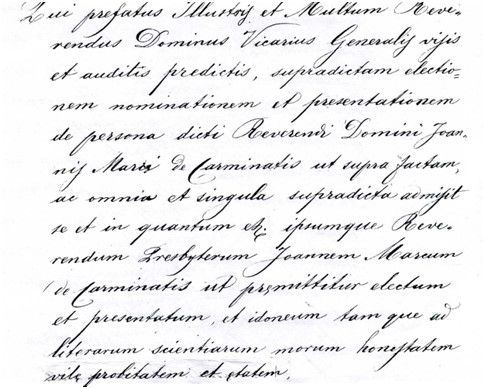 Qui prefatus Illustris et Multum Reve-
rendus Dominus Vicarius Generalis visis
et auditis predictis, supradictam electio-
nem nominationem et presentationem
de persona dicti Reverendi Domini Joan-
nis Marci de Carminatis ut supra factam,
ac omnia et singula supradicta admisit
se et in quantum etc. ipsumque Reve-
rendum Presbyterum Joannem Marcum
de Carminatis ut premittitur electum
et presentatum, et idoneum tam que ad
literarum scientiarum morum honestatem
vite probitatem et etatem.